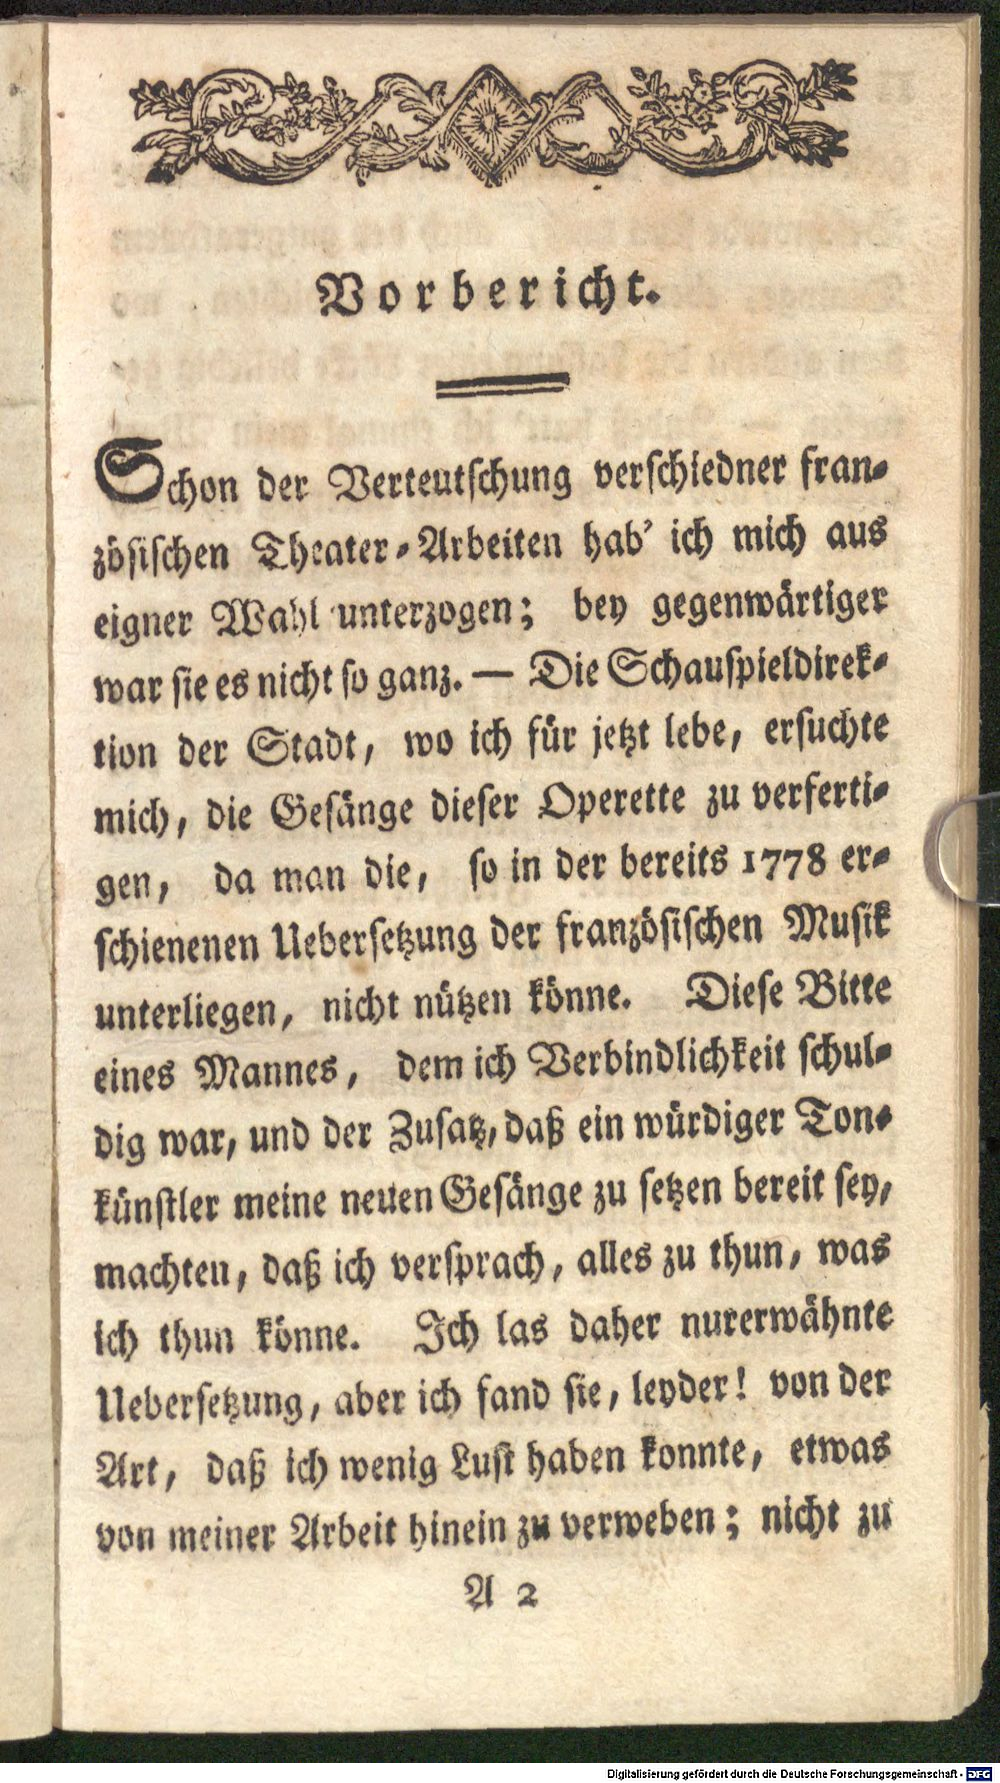 Vorbericht.
Schon der Verteutschung verschiedner fran-
zösischen Theater-Arbeiten hab' ich mich aus
eigner Wahl unterzogen; bey gegenwärtiger
war sie es nicht so ganz. — Die Schauspieldirek-
tion der Stadt, wo ich für jetzt lebe, ersuchte
mich, die Gesänge dieser Operette zu verferti-
gen, da man die, so in der bereits 1778 er-
schienenen Uebersetzung der französischen Musik
unterliegen, nicht nützen könne. Diese Bitte
eines Mannes, dem ich Verbindlichkeit schul-
dig war, und der Zusatz, daß ein würdiger Ton-
künstler meine neuen Gesänge zu setzen bereit sey,
machten, daß ich versprach, alles zu thun, was
ich thun könne. Ich las daher nurerwähnte
Uebersetzung, aber ich fand sie, leyder! von der
Art, daß ich wenig Lust haben konnte, etwas
von meiner Arbeit hinein zu verweben; nicht zu
A 2
Digitalisierung gefördert durch die Deutsche Forschungsgemeinschaft - DFG